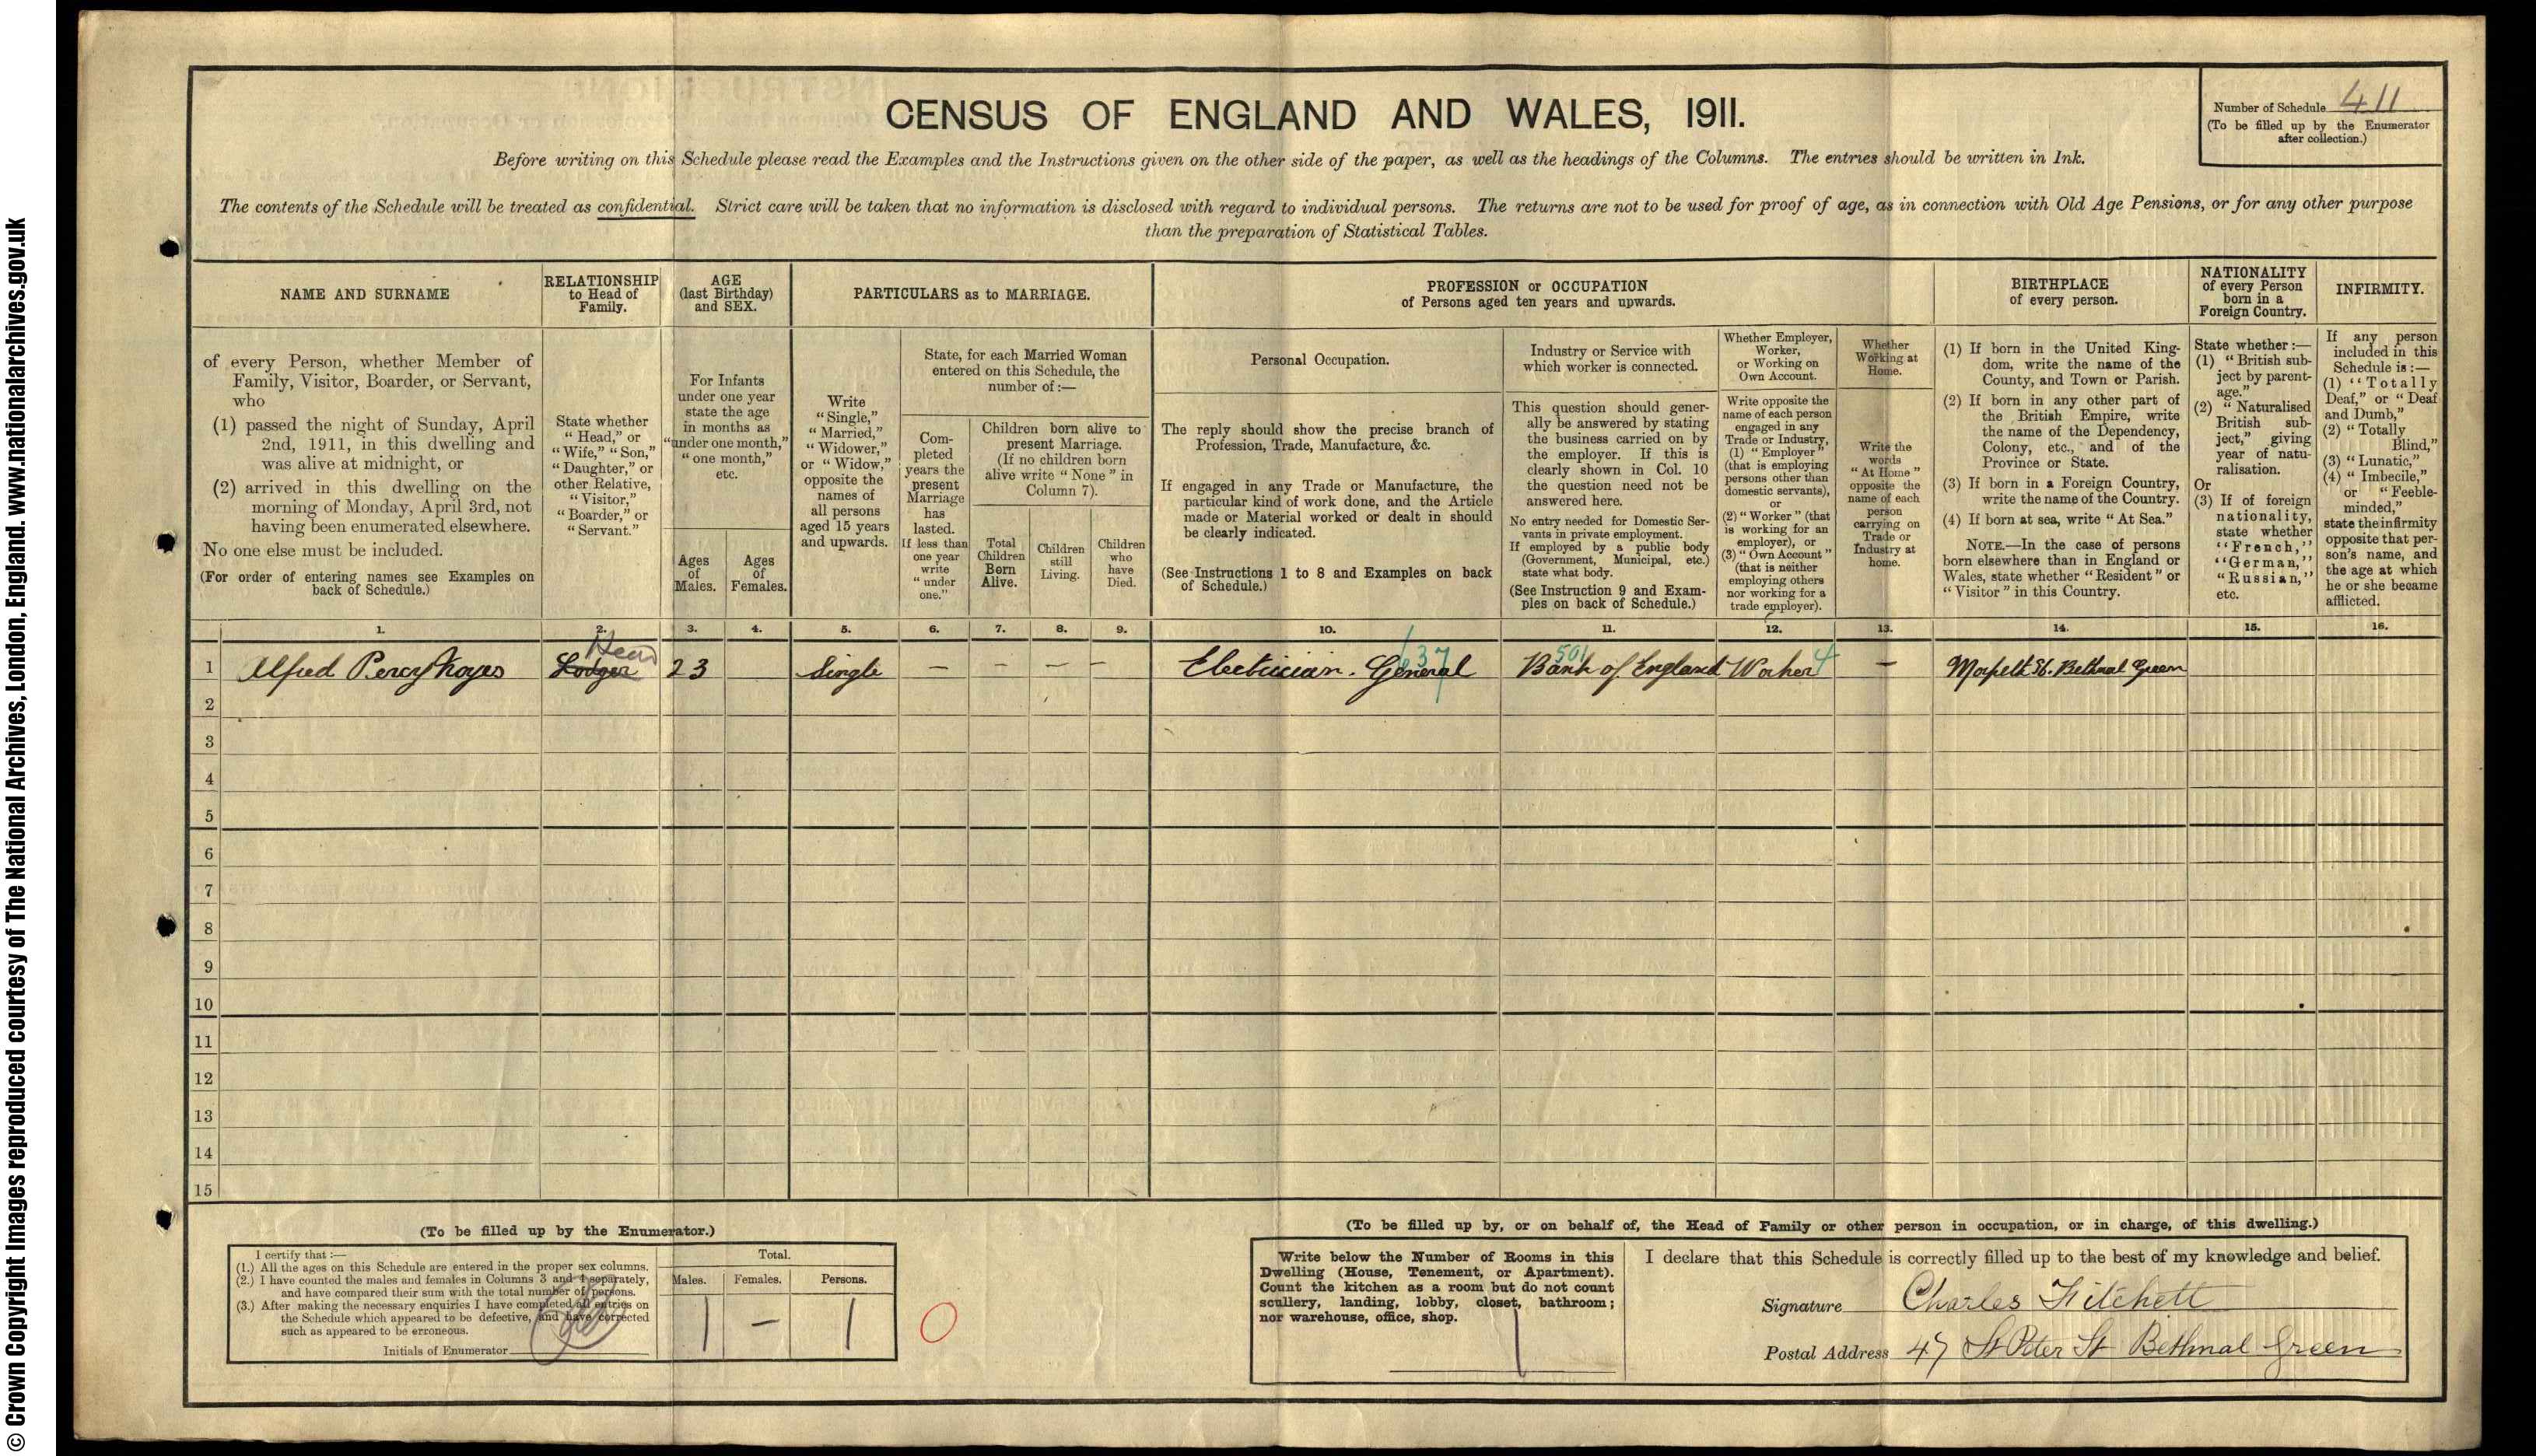 © Crown Copyright Images reproduced courtesy of The National Archives, London, England. www.nationalarchives.gov.uk
CENSUS OF ENGLAND AND WALES, 1911.
Number of Schedule 411
(To be filled up by the Enumerator
after collection.)
Before writing on this Schedule please read the Examples and the Instructions given on the other side of the paper, as well as the headings of the Columns. The entries should be written in Ink.
The contents of the Schedule will be treated as confidential. Strict care will be taken that no information is disclosed with regard to individual persons. The returns are not to be used for proof of age, as in connection with Old Age Pensions, or for any other purpose
than the preparation of Statistical Tables.
NAME AND SURNAME
of every Person, whether Member of
Family, Visitor, Boarder, or Servant,
who
(1) passed the night of Sunday, April
2nd, 1911, in this dwelling and
was alive at midnight, or
(2) arrived in this dwelling on the
morning of Monday, April 3rd, not
having been enumerated elsewhere.
No one else must be included.
(For order of entering names see Examples on
back of Schedule.)
RELATIONSHIP
to Head of
Family.
State whether
“Head,” or
“Wife,” “Son,”
“Daughter,” or
other Relative,
“Visitor,”
“Boarder,” or
“Servant.”
AGE
(last Birthday)
and SEX.
For Infants
under one year
state the age
in months as
“under one month,”
“one month,”
etc.
Ages
of
Males.
Ages
of
Females.
PARTICULARS as to MARRIAGE.
Write
“Single,”
“Married,”
“Widower,”
or “Widow,”
opposite the
names of
all persons
aged 15 years
and upwards.
State, for each Married Woman
entered on this Schedule, the
number of:—
Com-
pleted
years the
present
Marriage
has
lasted.
If less than
one year
write
“under
one.”
Children born alive to
present Marriage.
(If no children born
alive write “None” in
Column 7).
Total
Children
Born
Alive.
Children
still
Living.
Children
who
have
Died.
PROFESSION or OCCUPATION
of Persons aged ten years and upwards.
Personal Occupation.
The reply should show the precise branch of
Profession, Trade, Manufacture, &c.
If engaged in any Trade or Manufacture, the
particular kind of work done, and the Article
made or Material worked or dealt in should
be clearly indicated.
(See Instructions 1 to 8 and Examples on back
of Schedule.)
Industry or Service with
which worker is connected.
This question should gener-
ally be answered by stating
the business carried on by
the employer. If this is
clearly shown in Col. 10
the question need not be
answered here.
No entry needed for Domestic Ser-
vants in private employment.
If employed by a public body
(Government, Municipal, etc.)
state what body.
(See Instruction 9 and Exam-
ples on back of Schedule.)
Whether Employer,
Worker,
or Working on
Own Account.
Write opposite the
name of each person
engaged in any
Trade or Industry,
(1) “Employer”
(that is employing
persons other than
domestic servants),
or
(2) “Worker” (that
is working for an
employer), or
(3) “Own Account”
(that is neither
employing others
nor working for a
trade employer).
Whether
Working at
Home.
Write the
words
“At Home”
opposite the
name of each
person
carrying on
Trade or
Industry at
home.
BIRTHPLACE
of every person.
(1) If born in the United King-
dom, write the name of the
County, and Town or Parish.
(2) If born in any other part of
the British Empire, write
the name of the Dependency,
Colony, etc., and of the
Province or State.
(3) If born in a Foreign Country,
write the name of the Country.
(4) If born at sea, write “At Sea.”
NOTE.—In the case of persons
born elsewhere than in England or
Wales, state whether “Resident” or
“Visitor” in this Country.
NATIONALITY
of every Person
born in a
Foreign Country.
State whether:—
(1) “British sub-
ject by parent-
age.”
(2) “Naturalised
British sub-
ject,” giving
year of natu-
ralisation.
Or
(3) If of foreign
nationality,
state whether
“French,”
“German,”
“Russian,”
etc.
INFIRMITY.
If any person
included in this
Schedule is:—
(1) “Totally
Deaf,” or “Deaf
and Dumb,”
(2) “Totally
Blind,”
(3) “Lunatic,”
(4) “Imbecile,”
or “Feeble-
minded,”
state the infirmity
opposite that per-
son's name, and
the age at which
he or she became
afflicted.
1. 2. 3. 4. 5. 6. 7. 8. 9. 10. 11. 12. 13. 14. 15. 16.
Head
637 501 4
1 Alfred Percy Noyes Lodger 23 Single — — — — Electrician. General Bank of England Worker — Morpeth St. Bethnal Green
2
3
4
5
6
7
8
9
10
11
12
13
14
15
(To be filled up by the Enumerator.)
I certify that:—
(1.) All the ages on this Schedule are entered in the proper sex columns.
(2.) I have counted the males and females in Columns 3 and 4 separately,
and have compared their sum with the total number of persons.
(3.) After making the necessary enquiries I have completed all entries on
the Schedule which appeared to be defective, and have corrected
such as appeared to be erroneous.
Initials of Enumerator
Total.
Males. Females. Persons.
1 — 1
0
(To be filled up by, or on behalf of, the Head of Family or other person in occupation, or in charge, of this dwelling.)
Write below the Number of Rooms in this
Dwelling (House, Tenement, or Apartment).
Count the kitchen as a room but do not count
scullery, landing, lobby, closet, bathroom;
nor warehouse, office, shop.
1
I declare that this Schedule is correctly filled up to the best of my knowledge and belief.
Signature Charles Fitchett
Postal Address 47 St Peter St Bethnal Green